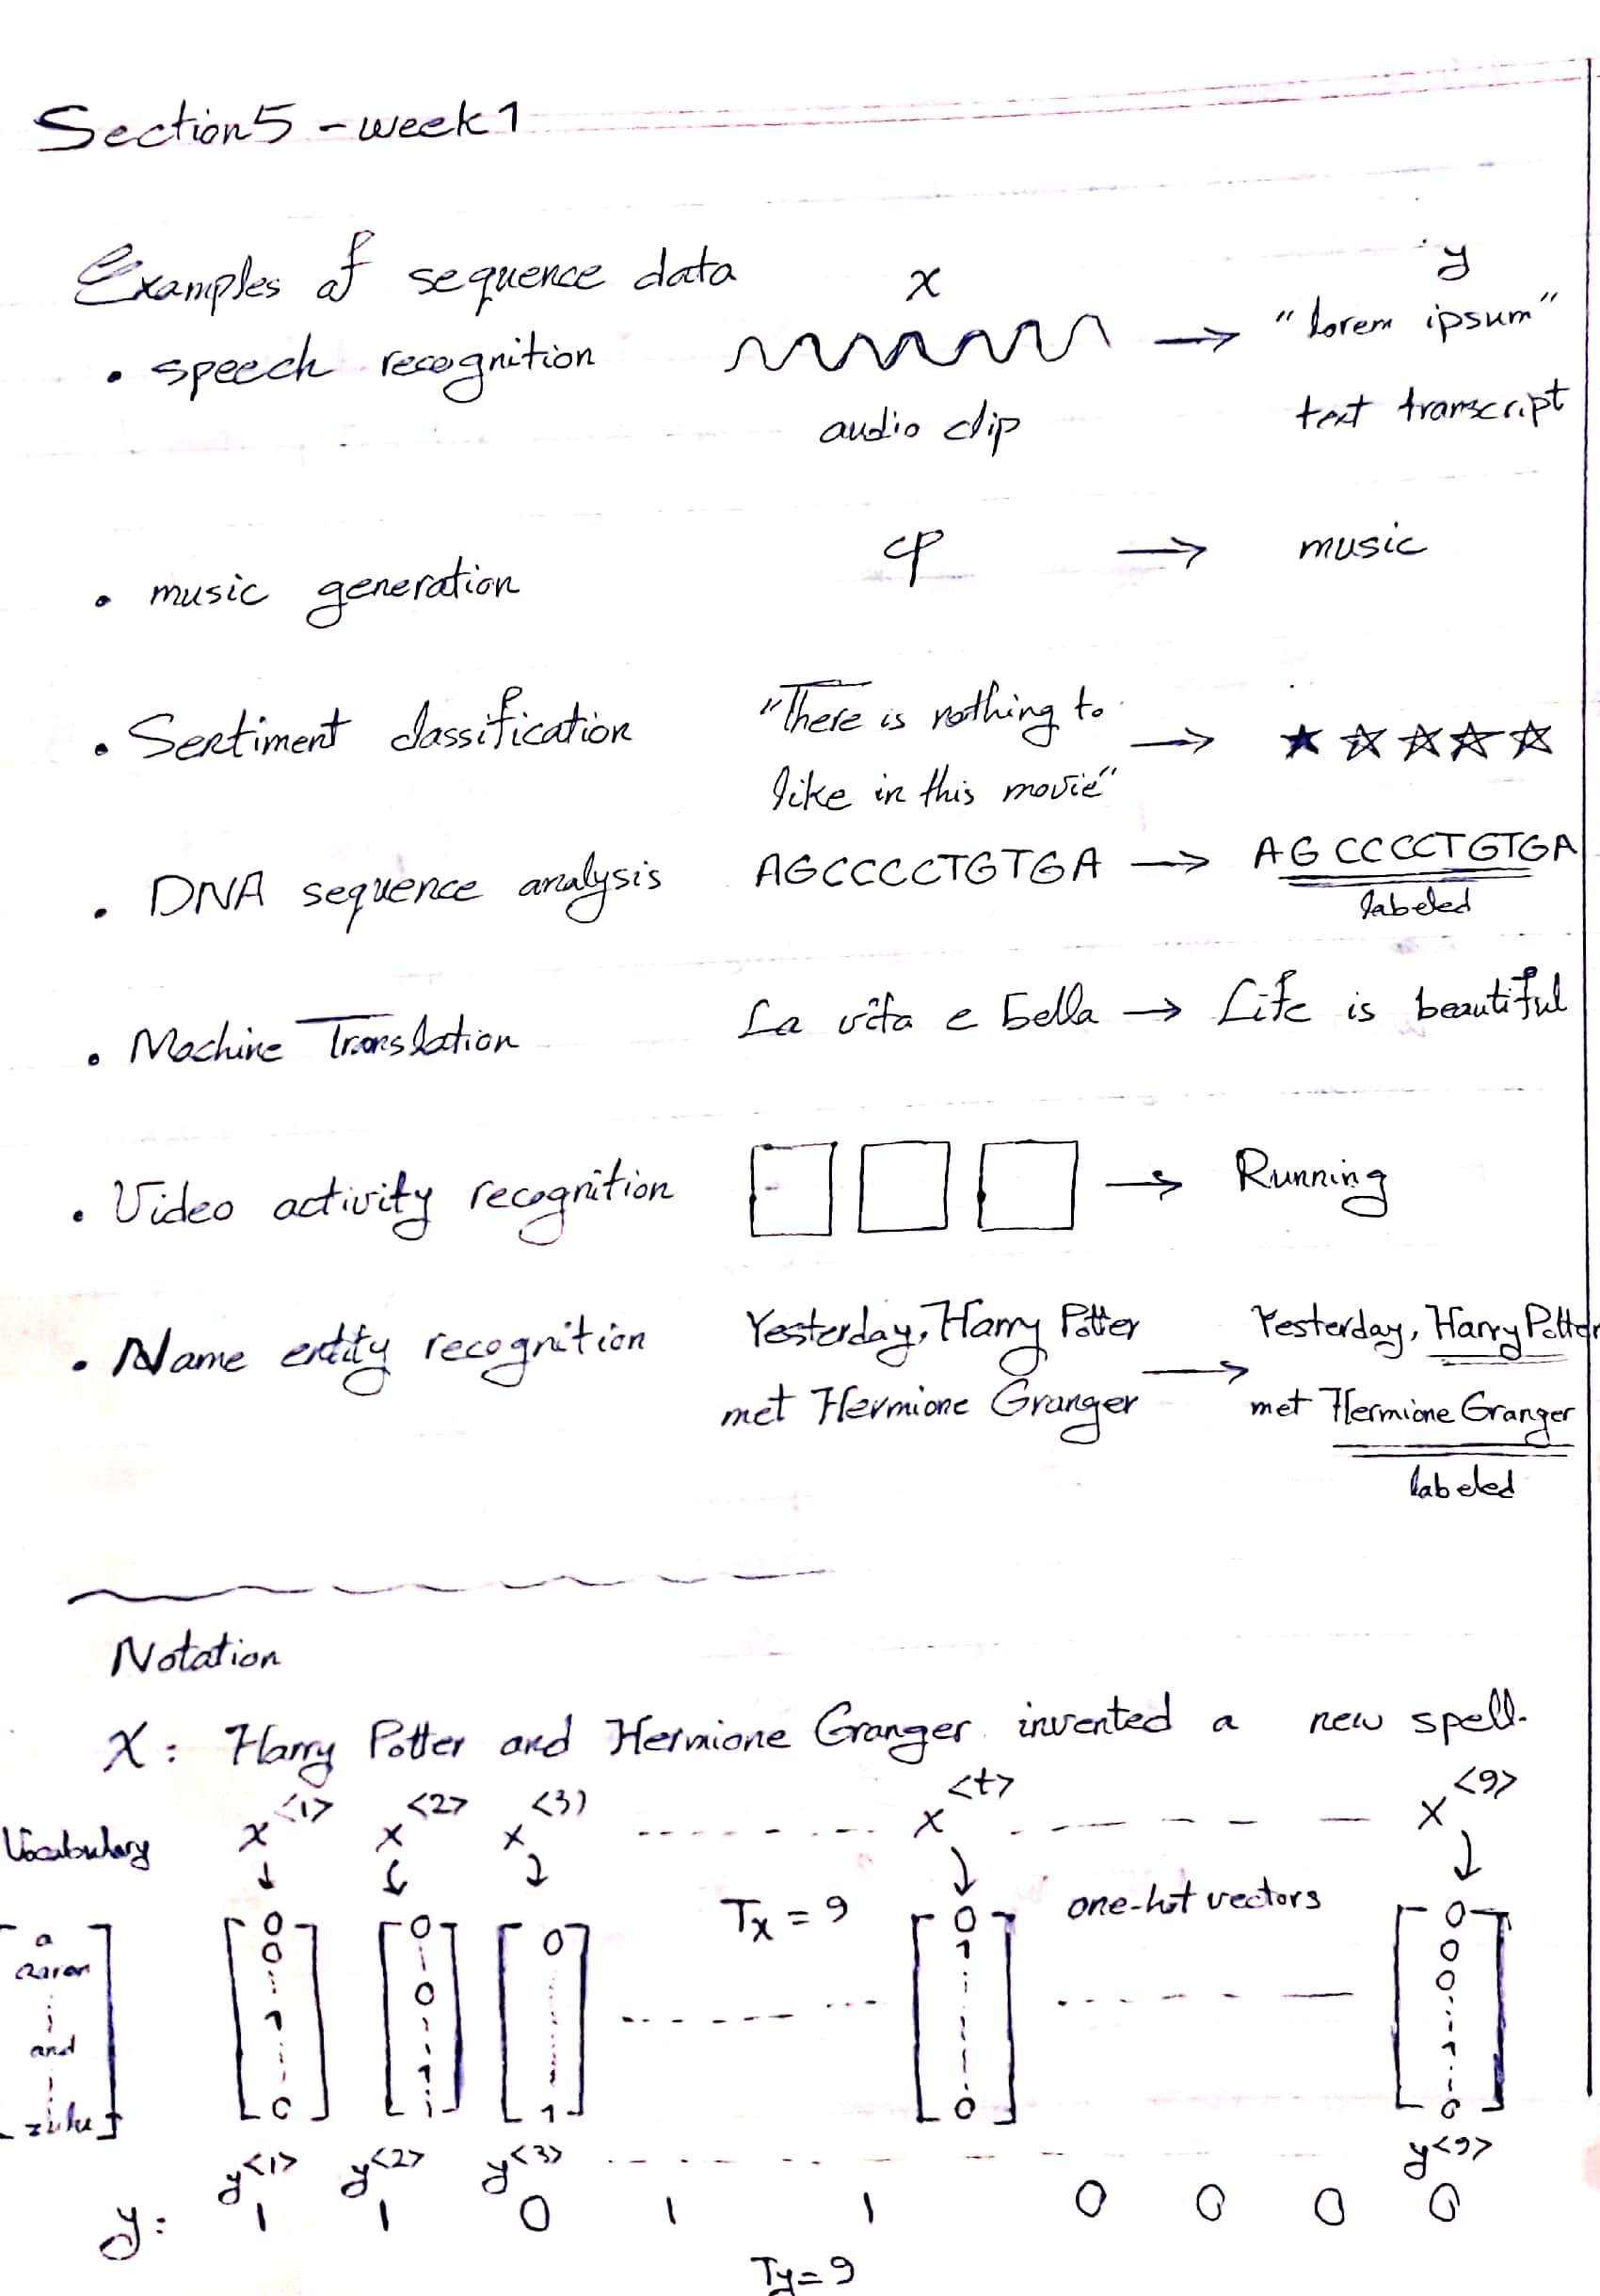 Section5 - week1
Examples of sequence data x y
• speech recognition → "lorem ipsum"
audio clip text transcript
• music generation φ → music
• Sentiment classification "There is nothing to like in this movie" → ★ ☆ ☆ ☆ ☆
• DNA sequence analysis AGCCCCTGTGA → AGCCCCTGTGA
labeled
• Machine Translation La vita e bella → Life is beautiful
• Video activity recognition → Running
• Name entity recognition Yesterday, Harry Potter met Hermione Granger → Yesterday, Harry Potter met Hermione Granger
labeled
Notation
X: Harry Potter and Hermione Granger invented a new spell.
x<1> x<2> x<3> x<t> x<9>
Vocabulary
Tx = 9 one-hot vectors
[a aaron ⋮ and ⋮ zulu] [0 0 ⋮ 1 ⋮ 0] [0 ⋮ 0 ⋮ 1 ⋮] [0 ⋮ 1] [0 1 ⋮ 0] [0 0 0 ⋮ 1 ⋮ 0]
y<1> y<2> y<3> y<9>
y: 1 1 0 1 1 0 0 0 0
Ty = 9